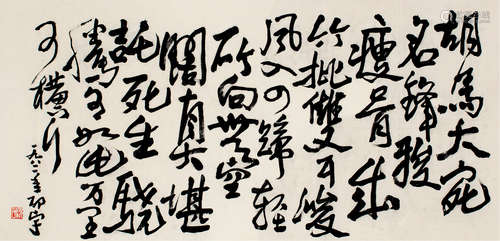 胡馬大宛
名鋒稜
瘦骨成
竹批雙耳峻
風入四蹄輕
所向無空
闊真堪
託死生驍
騰有如此万里
可橫行
一九八二年邵宇